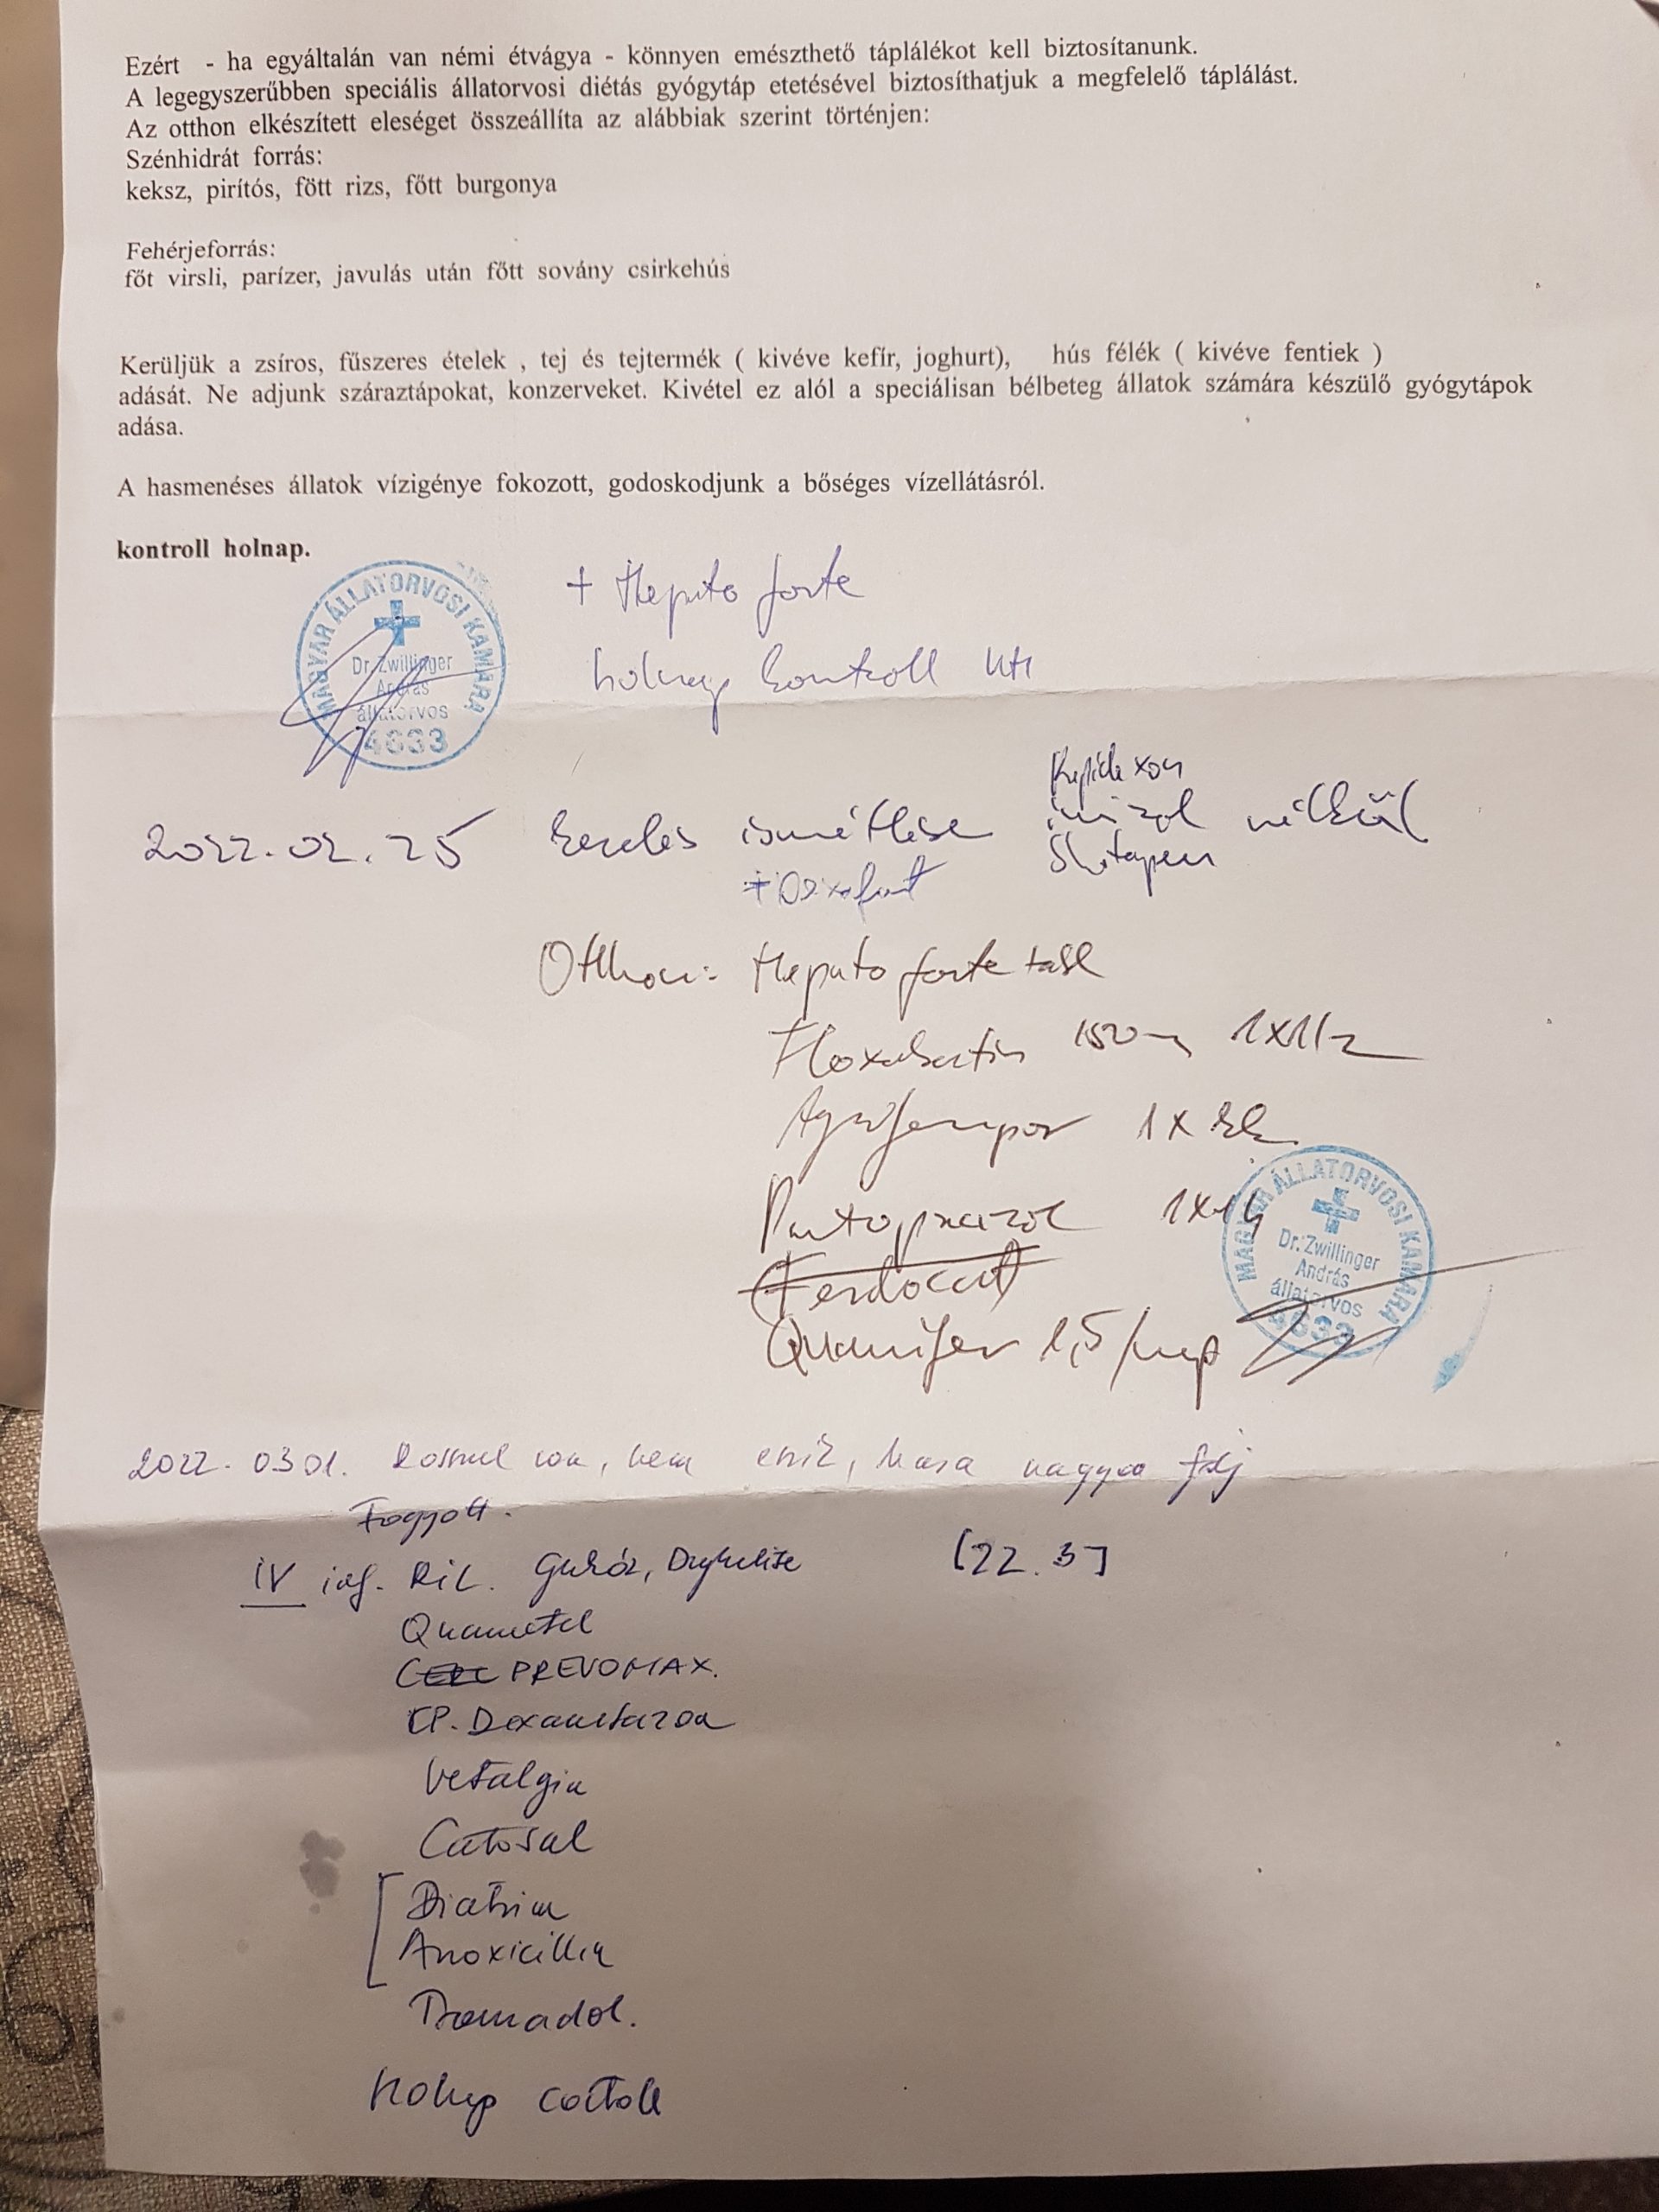 Ezért - ha egyáltalán van némi étvágya - könnyen emészthető táplálékot kell biztosítanunk.
A legegyszerűbben speciális állatorvosi diétás gyógytáp etetésével biztosíthatjuk a megfelelő táplálást.
Az otthon elkészített eleséget összeállíta az alábbiak szerint történjen:
Szénhidrát forrás:
keksz, pirítós, fött rizs, főtt burgonya
Fehérjeforrás:
főt virsli, parízer, javulás után főtt sovány csirkehús
Kerüljük a zsíros, fűszeres ételek , tej és tejtermék ( kivéve kefír, joghurt), hús félék ( kivéve fentiek )
adását. Ne adjunk száraztápokat, konzerveket. Kivétel ez alól a speciálisan bélbeteg állatok számára készülő gyógytápok
adása.
A hasmenéses állatok vízigénye fokozott, godoskodjunk a bőséges vízellátásról.
kontroll holnap.
MAGYAR ÁLLATORVOSI KAMARA
Dr. Zwillinger
András
állatorvos
4633
+ Hepato forte
holnap kontroll
2022.02.25 kezelés ismétlése imizol nélkül
Otthon: Hepato forte tabl
1x1/2
1x
Pantoprazol 1x
Quanifer 1,5/nap
MAGYAR ÁLLATORVOSI KAMARA
Dr. Zwillinger
András
állatorvos
4633
2022. 03 01. Rosszul van, nem eszik, hasa nagyon fáj
Fogyott.
IV inf. RiL. Glukóz, Duphalite [22.3]
Quamatel
PREVOMAX.
Dexametazon
Vetalgin
Catosal
Diatrim
Amoxicillin
Tramadol.
Holnap